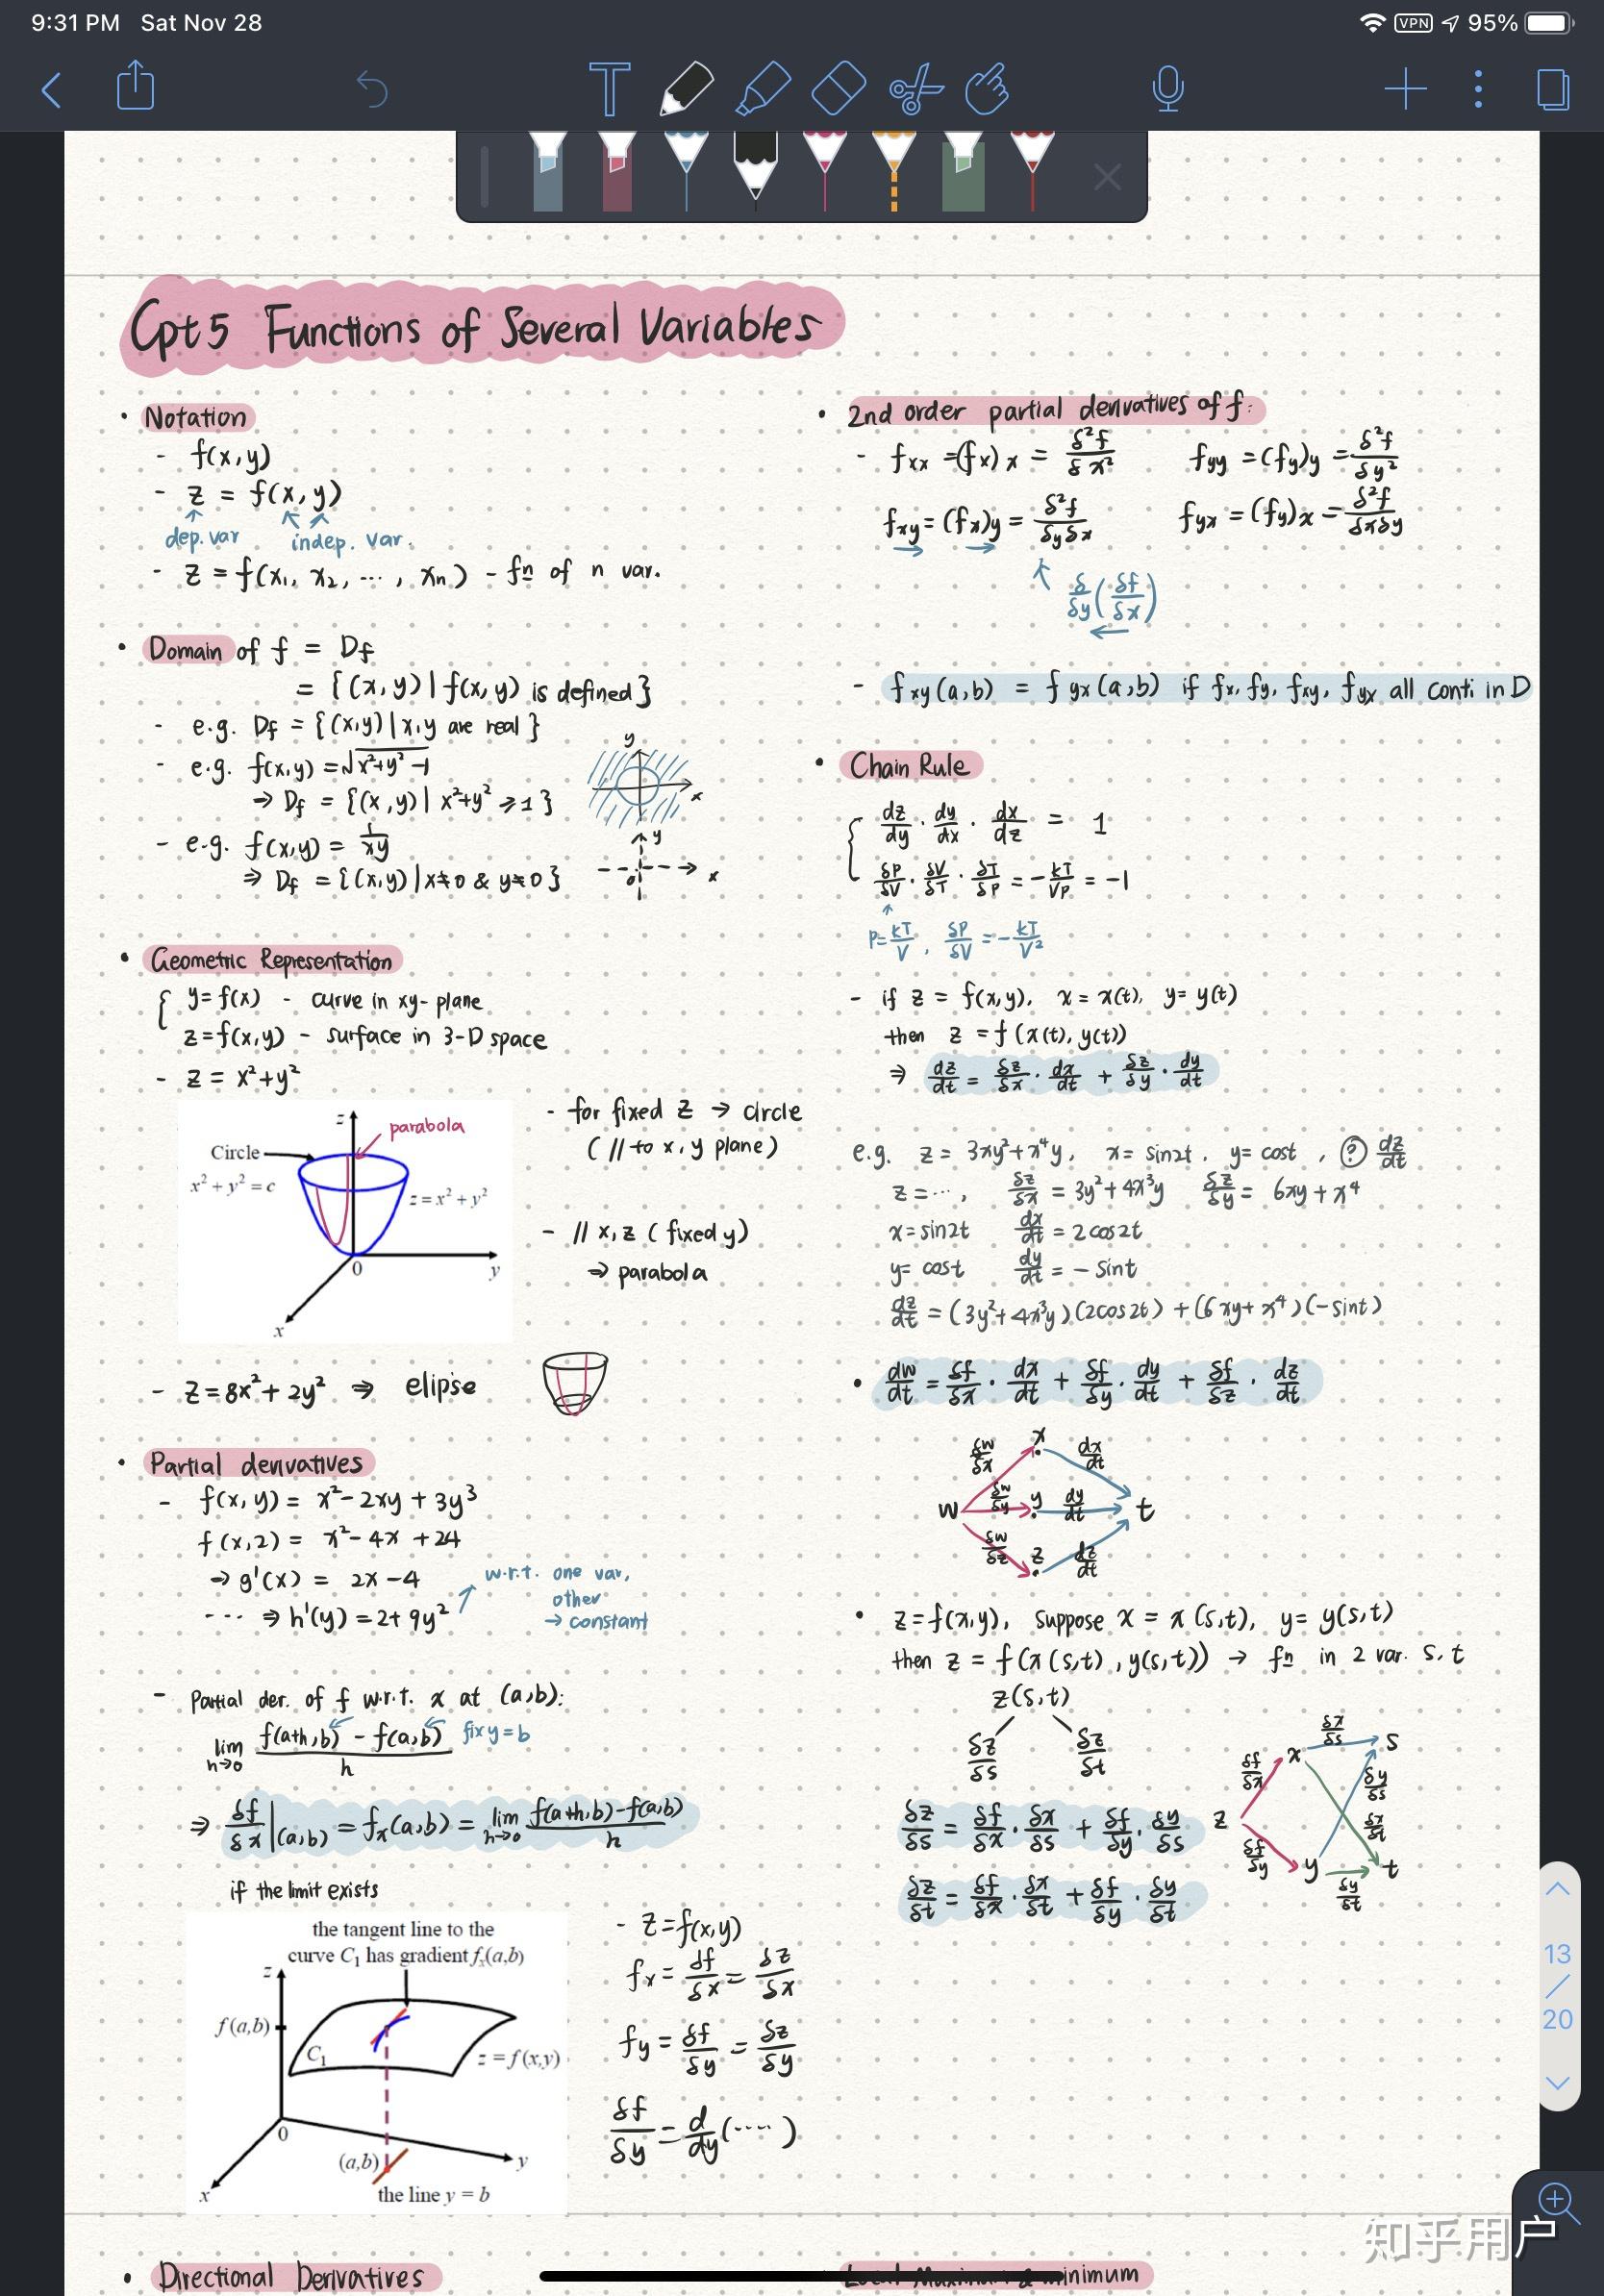 9:31 PM Sat Nov 28
VPN 95%
Cpt5 Functions of Several Variables
• Notation
- f(x,y)
- z = f(x,y)
dep. var indep. var.
- z = f(x₁, x₂, ..., xₙ) - fn of n var.
• Domain of f = Df
= {(x,y) | f(x,y) is defined}
- e.g. Df = {(x,y) | x,y are real}
- e.g. f(x,y) = √(x²+y²-1)
⇒ Df = {(x,y) | x²+y² ≥ 1}
y
x
- e.g. f(x,y) = 1/xy
⇒ Df = {(x,y) | x≠0 & y≠0}
y
0
x
• Geometric Representation
{ y=f(x) - curve in xy-plane
z=f(x,y) - surface in 3-D space
- z = x²+y²
z
parabola
Circle
x² + y² = c
z = x² + y²
0
y
x
- for fixed z → circle
(// to x,y plane)
- // x,z (fixed y)
⇒ parabola
- z=8x²+2y² ⇒ elipse
• Partial derivatives
- f(x,y) = x²-2xy+3y³
f(x,2) = x²-4x+24
→ g'(x) = 2x-4
---- ⇒ h'(y) = 2+9y²
w.r.t. one var,
other
→ constant
- Partial der. of f w.r.t. x at (a,b):
lim h→0 (f(a+h,b) - f(a,b))/h fix y=b
⇒ δf/δx |(a,b) = fx(a,b) = lim h→0 (f(a+h,b)-f(a,b))/h
if the limit exists
the tangent line to the
curve C₁ has gradient fₓ(a,b)
z
f(a,b)
C₁
z = f(x,y)
0
(a,b)
y
x
the line y = b
- z=f(x,y)
fx = δf/δx = δz/δx
fy = δf/δy = δz/δy
δf/δy = d/dy(····)
• Directional Derivatives
• 2nd order partial derivatives of f:
- fxx = (fx)x = δ²f/δx² fyy = (fy)y = δ²f/δy²
fxy = (fx)y = δ²f/δyδx fyx = (fy)x = δ²f/δxδy
δ/δy(δf/δx)
- fxy(a,b) = fyx(a,b) if fx, fy, fxy, fyx all conti in D
• Chain Rule
{ dz/dy · dy/dx · dx/dz = 1
δP/δV · δV/δT · δT/δP = -kT/VP = -1
P=kT/V, δP/δV = -kT/V²
- if z = f(x,y), x = x(t), y = y(t)
then z = f(x(t), y(t))
⇒ dz/dt = δz/δx · dx/dt + δz/δy · dy/dt
e.g. z = 3xy²+x⁴y, x = sin2t, y = cost, ? dz/dt
z = ···, δz/δx = 3y²+4x³y δz/δy = 6xy+x⁴
x = sin2t dx/dt = 2cos2t
y = cost dy/dt = -sint
dz/dt = (3y²+4x³y)(2cos2t) + (6xy+x⁴)(-sint)
• dw/dt = δf/δx · dx/dt + δf/δy · dy/dt + δf/δz · dz/dt
δw/δx x dx/dt
w δw/δy y dy/dt t
δw/δz z dz/dt
• z=f(x,y), suppose x = x(s,t), y = y(s,t)
then z = f(x(s,t), y(s,t)) → fn in 2 var. s,t
z(s,t)
δz/δs δz/δt
δz/δs = δf/δx · δx/δs + δf/δy · δy/δs
δz/δt = δf/δx · δx/δt + δf/δy · δy/δt
δx/δs
δf/δx x s
δy/δs
z δx/δt
δf/δy y t
δy/δt
13
/
20
Local Maximum & minimum
知乎用户